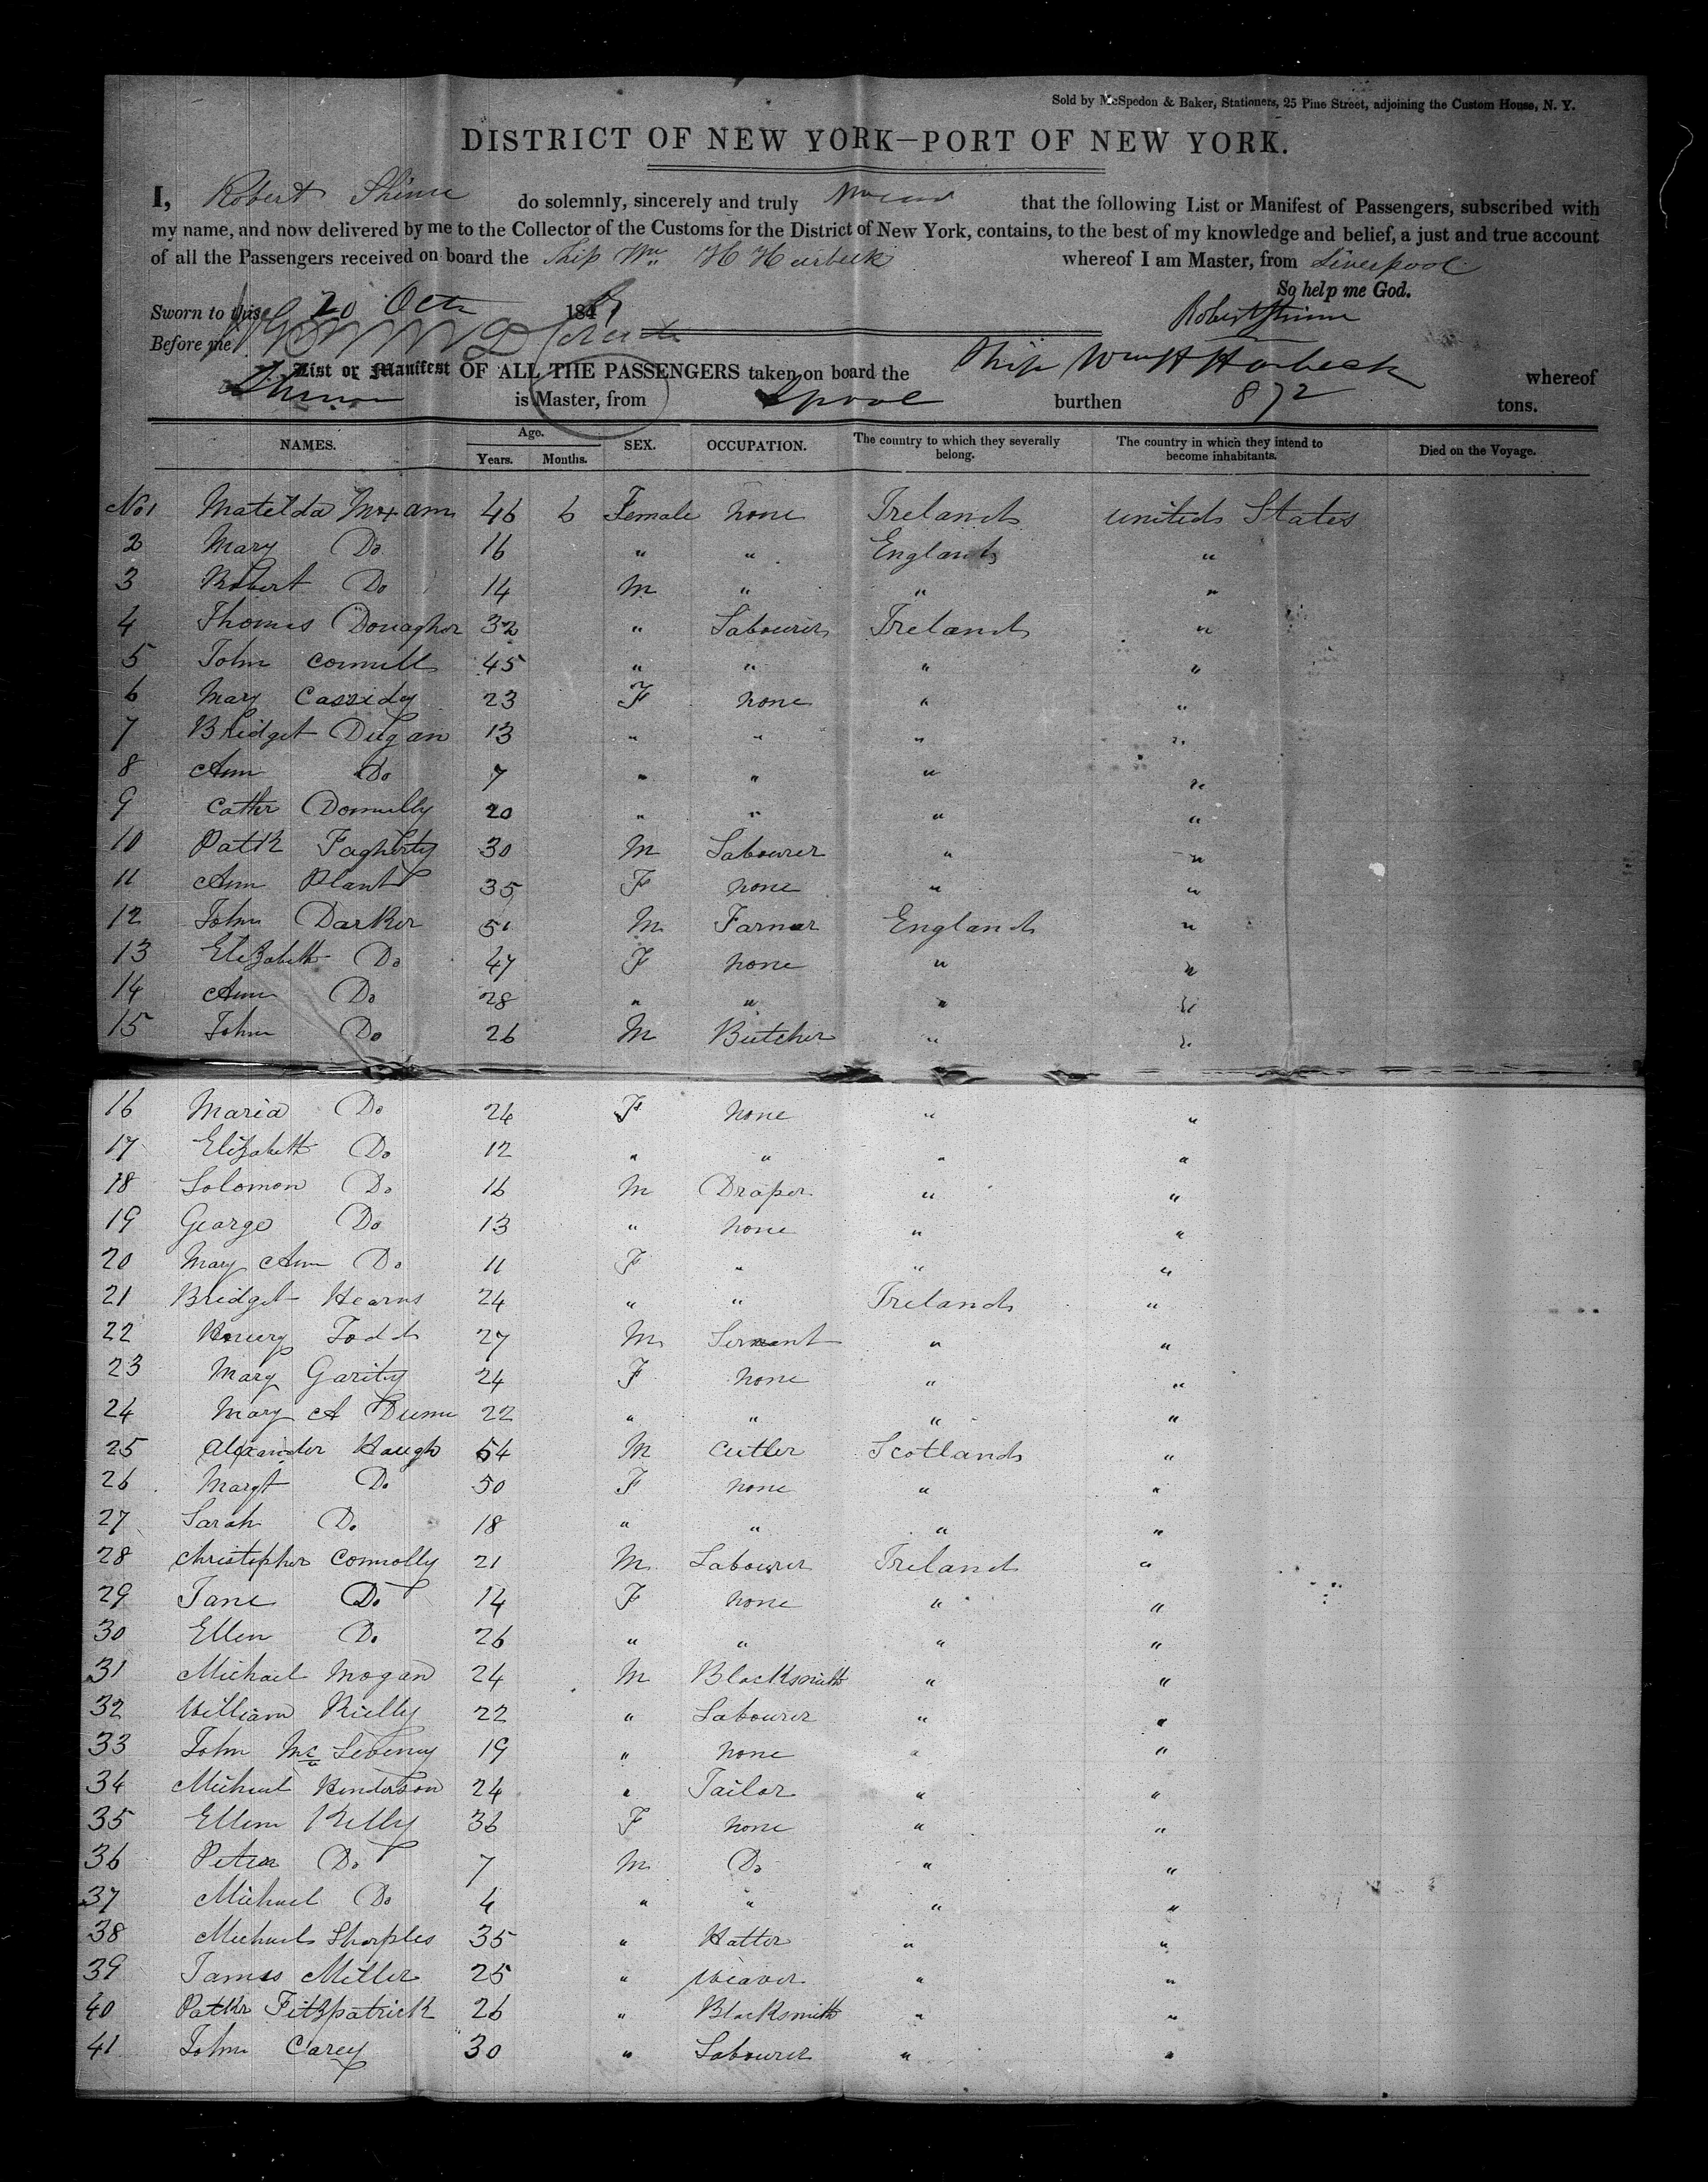 Sold by McSpedon & Baker, Stationers, 25 Pine Street, adjoining the Custom House, N. Y.
DISTRICT OF NEW YORK—PORT OF NEW YORK.
I, Robert do solemnly, sincerely and truly that the following List or Manifest of Passengers, subscribed with
my name, and now delivered by me to the Collector of the Customs for the District of New York, contains, to the best of my knowledge and belief, a just and true account
of all the Passengers received on board the Ship Wm H Harbeck whereof I am Master, from Liverpool
So help me God.
Sworn to this 20 Octr 184
Robert
Before me
List or Manifest OF ALL THE PASSENGERS taken on board the Ship Wm H Harbeck whereof
is Master, from Lpool burthen 872 tons.
NAMES. Age. Years. Months. SEX. OCCUPATION. The country to which they severally belong. The country in which they intend to become inhabitants. Died on the Voyage.
No 1 Matilda 46 6 Female none Ireland united States
2 Mary Do 16 " " England "
3 Robert Do 14 M " " "
4 Thomas Donagher 32 " Labourer Ireland "
5 John 45 " " " "
6 Mary Cassidy 23 F none " "
7 Bridget Dugan 13 " " " "
8 Ann Do 7 " " " "
9 Cathr Donnelly 20 " " " "
10 Patk Fagherty 30 M Labourer " "
11 Ann Plant 35 F none " "
12 John Darker 51 M Farmer England "
13 Elizabeth Do 47 F none " "
14 Ann Do 28 " " " "
15 John Do 26 M Butcher " "
16 Maria Do 24 F none " "
17 Elizabeth Do 12 " " " "
18 Solomon Do 16 M Draper " "
19 George Do 13 " none " "
20 Mary Ann Do 11 F " " "
21 Bridget Hearns 24 " " Ireland "
22 Henery Todd 27 M Servant " "
23 Mary Garity 24 F none " "
24 Mary A Dunn 22 " " " "
25 Alexander Haugh 54 M Cutler Scotland "
26 Margt Do 50 F none " "
27 Sarah Do 18 " " " "
28 Christopher Connolly 21 M Labourer Ireland "
29 Jane Do 14 F none " "
30 Ellen Do 26 " " " "
31 Michael Mogan 24 M Blacksmith " "
32 William Rielly 22 " Labourer " "
33 John Mc 19 " none " "
34 Michael Henderson 24 " Tailor " "
35 Ellen Kelly 36 F none " "
36 Peter Do 7 M Do " "
37 Michael Do 4 " " " "
38 Michael Sharples 35 " Hatter " "
39 James Miller 25 " Weaver " "
40 Patkr Fitzpatrick 26 " Blacksmith " "
41 John Carey 30 " Labourer " "